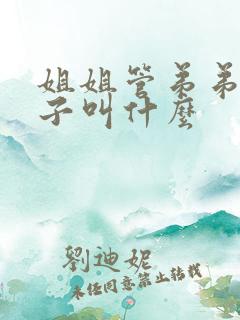 姐姐管弟弟
子叫什麼
劉迪妮
未经同意禁止转载